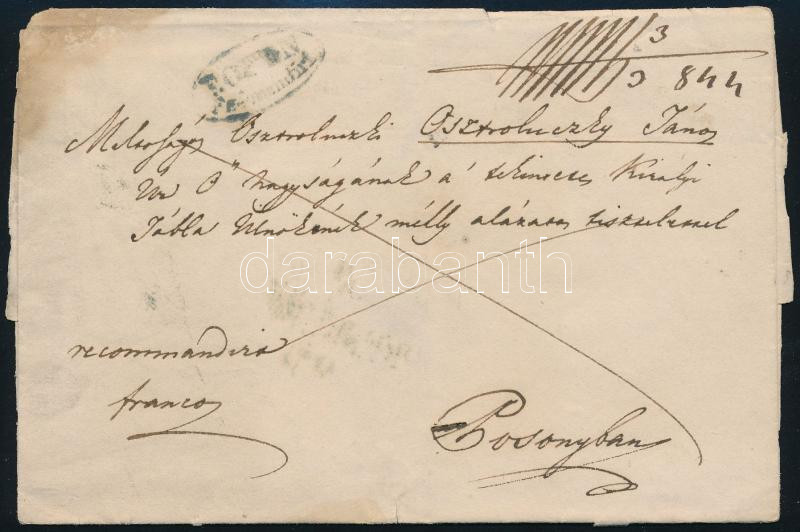 3
3 844
Méltoságos Osztroluczki Osztroluczky János
Úr Ő nagyságának a' tekintetes Királyi
Tábla Ülnökének mélly alázatos tisztelettel
recommandirt
franco
Posonyban
darabanth